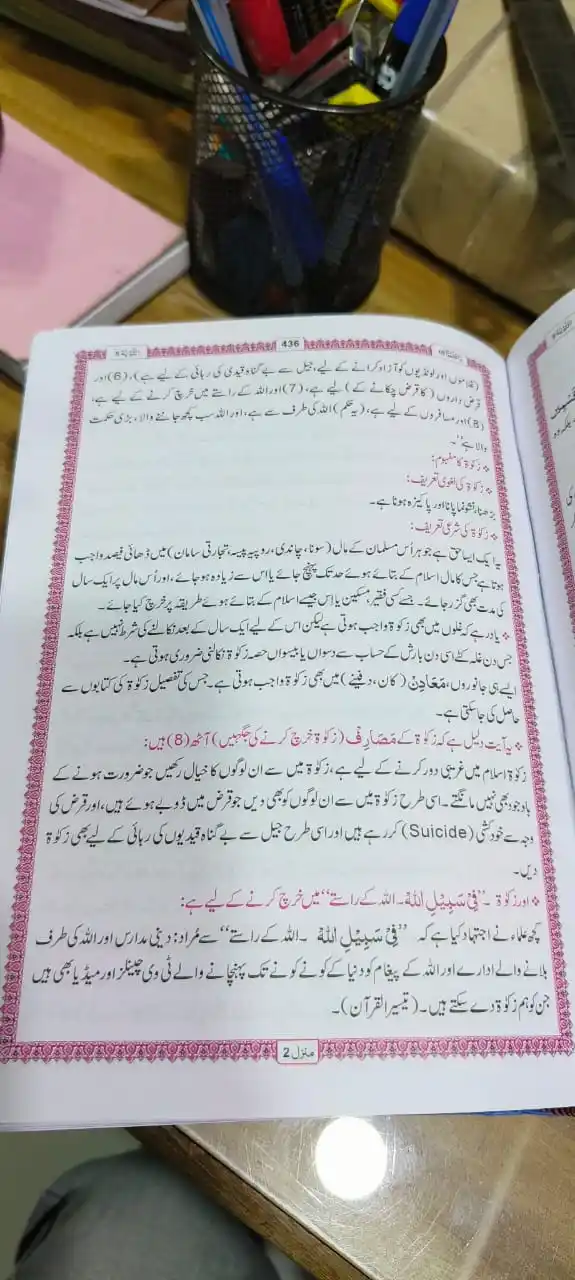 436
(غلاموں اور لونڈیوں کو آزاد کرانے کے لیے، جیل سے بے گناہ قیدی کی رہائی کے لیے ہے)، (6) اور
قرض داروں (کا قرض چکانے کے) لیے ہے، (7) اور اللہ کے راستے میں خرچ کرنے کے لیے ہے،
(8) اور مسافروں کے لیے ہے، (یہ حکم) اللہ کی طرف سے ہے، اور اللہ سب کچھ جاننے والا، بڑی حکمت
والا ہے''۔
زکوٰۃ کا مفہوم:
زکوٰۃ کی لغوی تعریف:
بڑھنا، نشوونما پانا اور پاکیزہ ہونا ہے۔
زکوٰۃ کی شرعی تعریف:
یہ ایک ایسا حق ہے جو ہر اُس مسلمان کے مال (سونا، چاندی، روپیہ پیسہ، تجارتی سامان) میں ڈھائی فیصد واجب
ہوتا ہے جس کا مال اسلام کے بتائے ہوئے حد تک پہنچ جائے یا اس سے زیادہ ہو جائے، اور اُس مال پر ایک سال
کی مدت بھی گزر جائے۔ جسے کسی فقیر، مسکین یا اِس جیسے اسلام کے بتائے ہوئے طریقہ پر خرچ کیا جائے۔
یاد رہے کہ غلوں میں بھی زکوٰۃ واجب ہوتی ہے لیکن اس کے لیے ایک سال کے بعد نکالنے کی شرط نہیں ہے بلکہ
جس دن غلہ کٹے اسی دن بارش کے حساب سے دسواں یا بیسواں حصہ زکوٰۃ نکالنی ضروری ہوتی ہے۔
ایسے ہی جانوروں، مَعَادِنْ (کان، دفینے) میں بھی زکوٰۃ واجب ہوتی ہے۔ جس کی تفصیل زکوٰۃ کی کتابوں سے
حاصل کی جاسکتی ہے۔
یہ آیت دلیل ہے کہ زکوٰۃ کے مَصَارِفْ (زکوٰۃ خرچ کرنے کی جگہیں) آٹھ (8) ہیں:
زکوٰۃ اسلام میں غریبی دور کرنے کے لیے ہے، زکوٰۃ میں سے ان لوگوں کا خیال رکھیں جو ضرورت ہونے کے
باوجود بھی نہیں مانگتے۔ اسی طرح زکوٰۃ میں سے ان لوگوں کو بھی دیں جو قرض میں ڈوبے ہوئے ہیں، اور قرض کی
وجہ سے خودکشی (Suicide) کر رہے ہیں اور اسی طرح جیل سے بے گناہ قیدیوں کی رہائی کے لیے بھی زکوٰۃ
دیں۔
اور زکوٰۃ ۔''فِیْ سَبِیْلِ اللّٰهِ۔ اللہ کے راستے'' میں خرچ کرنے کے لیے ہے:
کچھ علماء نے اجتہاد کیا ہے کہ ''فِیْ سَبِیْلِ اللّٰهِ ۔ اللہ کے راستے'' سے مُراد: دینی مدارس اور اللہ کی طرف
بلانے والے ادارے اور اللہ کے پیغام کو دنیا کے کونے کونے تک پہنچانے والے ٹی وی چینلز اور میڈیا بھی ہیں
جن کو ہم زکوٰۃ دے سکتے ہیں۔ (تیسیر القرآن)۔
منزل 2